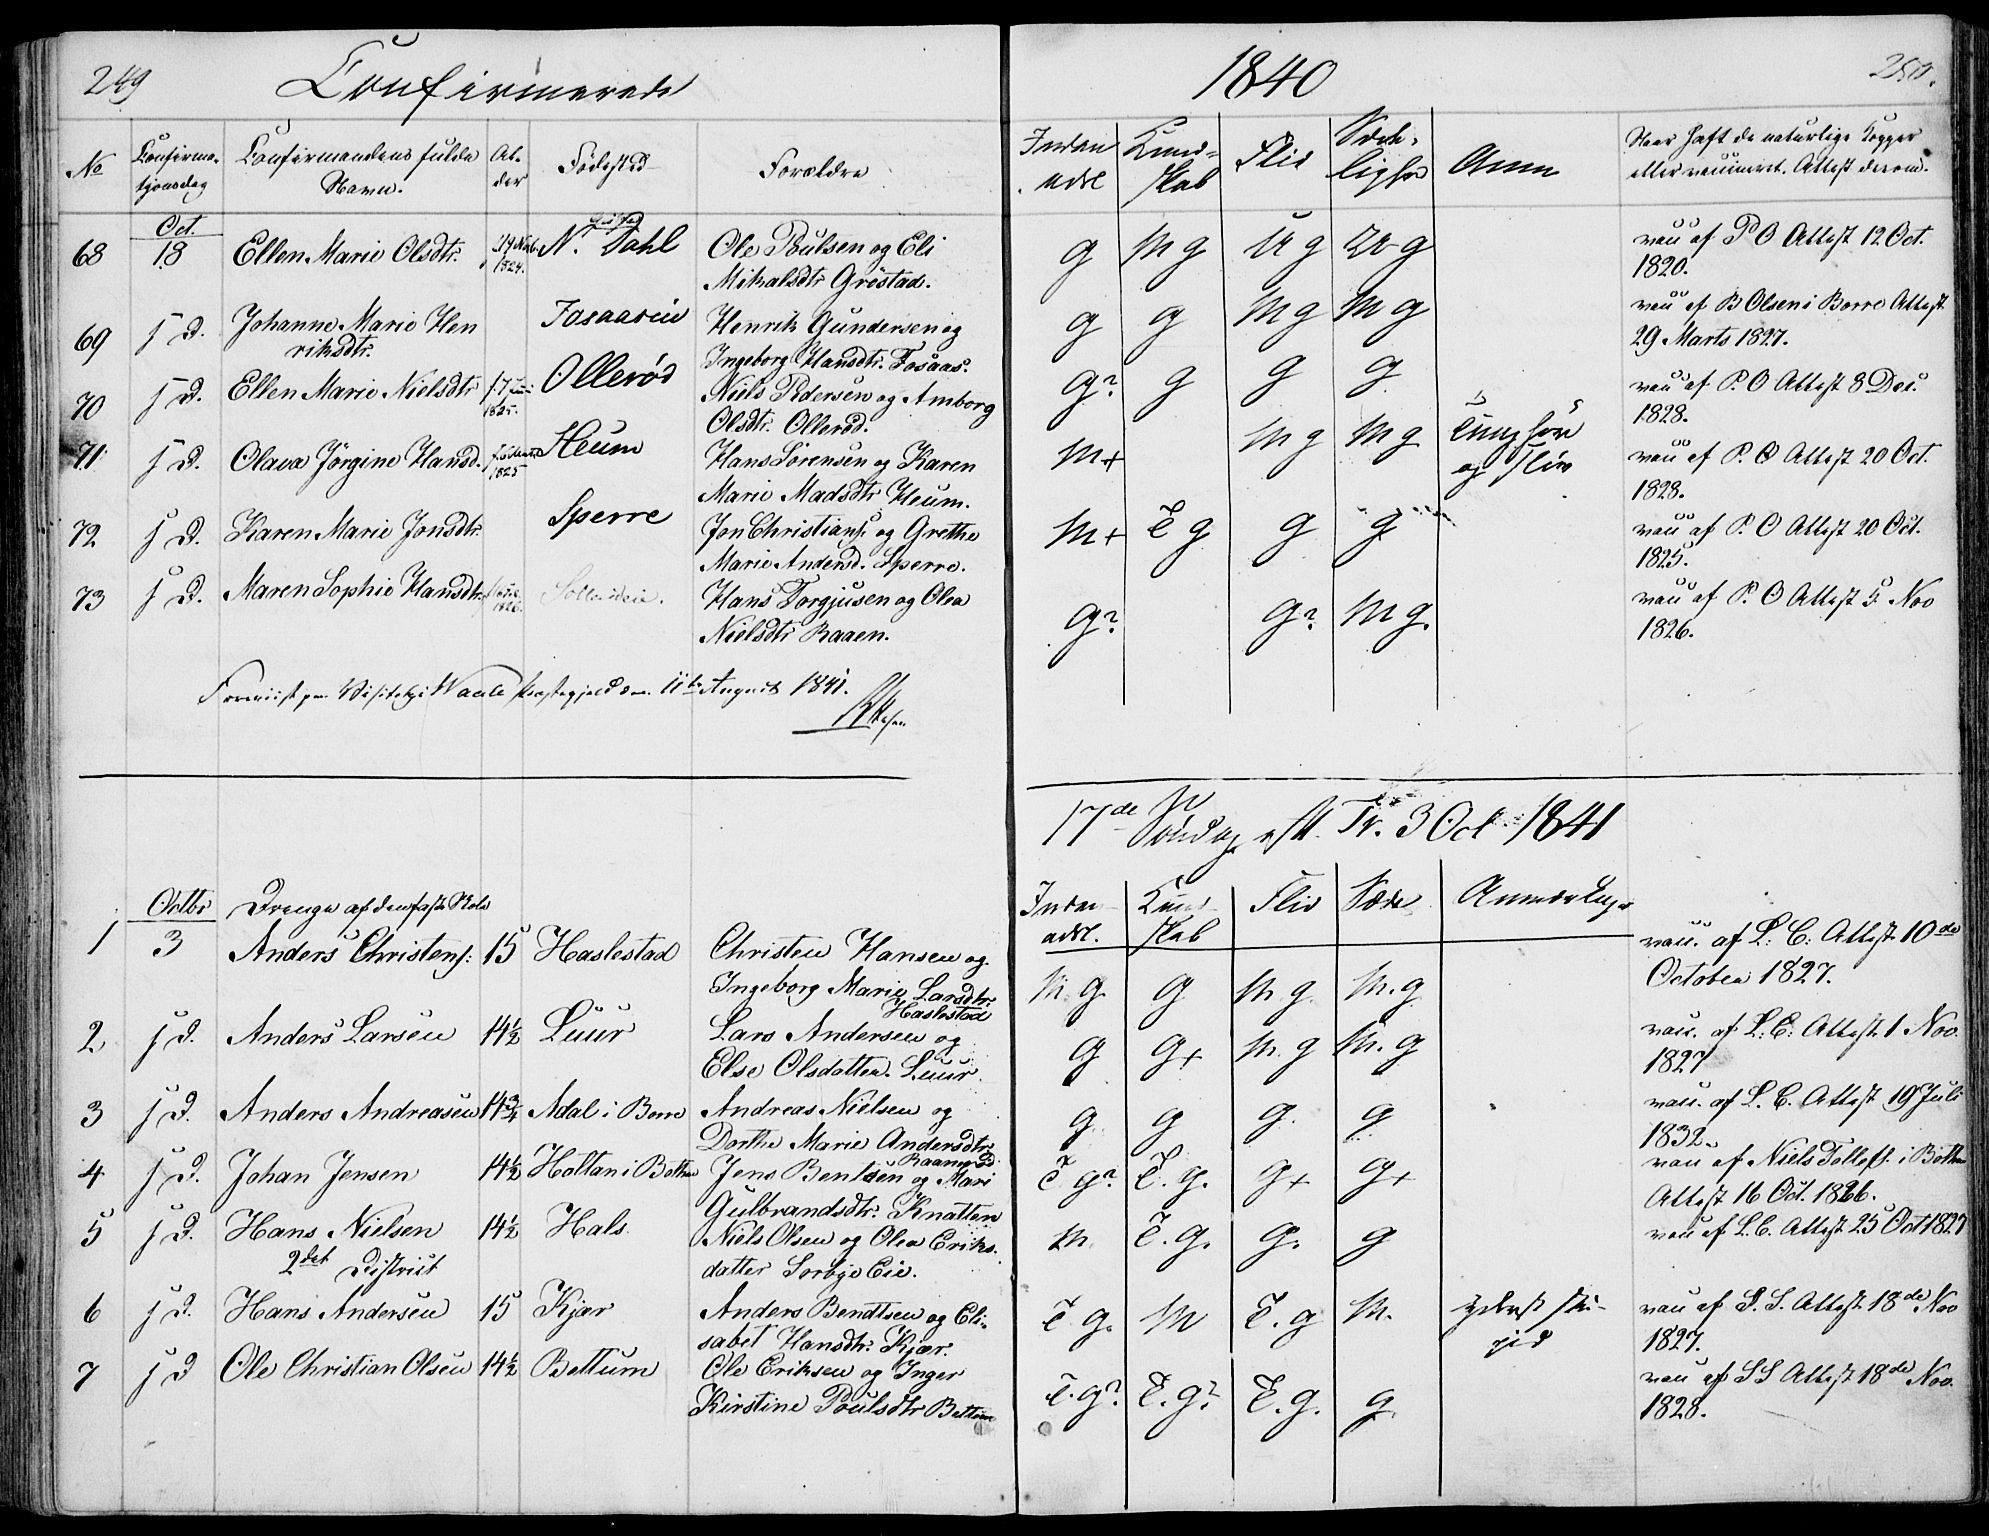 249 Confirmerede 1840 250.
No Confirma- Confirmandens fulde Al- Fødested Forældre Inden Kund- Flid Sæde- Anm Naar haft de naturlige Kopper
tjonsdag Navn. der adl skab lighed eller vaccineret. Attest derom.
Oct.
68 18 Ellen Marie Olsdtr. 1824. N. Dahl Ole Poulsen og Eli g Mg Ug g vac af P O Attest 12 Oct.
Mikalsdtr Grestad. 1820.
69 s D. Johanne Marie Hen Fosaaseie Henrik Gundersen og g g Mg Mg vac af B Olsen i Borre Attest
riksdtr. Ingeborg Hansdtr. Fosaas. 29 Marts 1827.
70 s D. Ellen Marie Nielsdtr 1825. Ollerød Niels Pedersen og Amborg g? g g g vac af P. O Attest 8 Dec.
Olsdtr. Ollerød. 1828.
71 s D. Olava Jørgine Hansd. 1825 Heum Hans Sørensen og Karen M+ Mg Mg Tunghør vac af P. O Attest 20 Oct.
Marie Madsdtr Heum. og 1828.
72 s D. Karen Marie Jonsdtr. Sperre Jon Christians. og Grethe M+ T g g g vac af P. O Attest 20 Oct.
Marie Andersd. Sperre. 1825.
73 s D. Maren Sophie Hansdtr. 1826. Hans Torgjusen og Olea g? g? Mg. vac af P. O Attest 5 Nov
Nielsdtr Raaen. 1826.
Foreviist paa Visitats i Waale Præstegjeld den 11te August 1841.
17de Søndag eft. Tr. 3 Oct. 1841
Octbr Drenge af den faste Skole Inden Kund Flid Sæde Anmærkning
adl. skab
1 3 Anders Christens: 15 Haslestad Christen Hansen og M. g. g M. g. M. g vac. af L: C: Attest 10de
Ingeborg Marie Larsdtr. October 1827.
Haslestad
2 s D. Anders Larsen 14½ Luur Lars Andersen og g g+ M. g M. g vac. af L: C: Attest 1 Nov.
Else Olsdatter. Luur. 1827
3 s D. Anders Andreasen 14¾ Adal i Borre Andreas Nielsen og g g g. g vac. af L. C. Attest 19 Juli
Dorthe Marie Andersdtr 1832.
4 s D. Johan Jensen 14½ Holtan i Bothne Jens Bentsen og Mari T g? T. g. g+ g+ vac af Niels Tollefs. i Bothne
Gulbrandsdtr. Knatten Attest 16 Oct. 1826.
5 s D. Hans Nielsen 14½ Hals Niels Olsen og Olea Eriks- M. T. g. g. g vac af L. C. Attest 25 Oct 1827
2det District datter Sørbye Eie.
6 s D. Hans Andersen 15 Kjær Anders Bendtsen og Eli- T g. M T. g M. yderst stu- vac af S. S. Attest 18de Nov
sabet Hansdtr. Kjær. pid 1827.
7 s D Ole Christian Olsen 14½ Bettum Ole Eriksen og Inger T. g? T. g? T. g. g vac af S S Attest 18de Nov.
Kirstine Poulsdtr Bettum 1828.